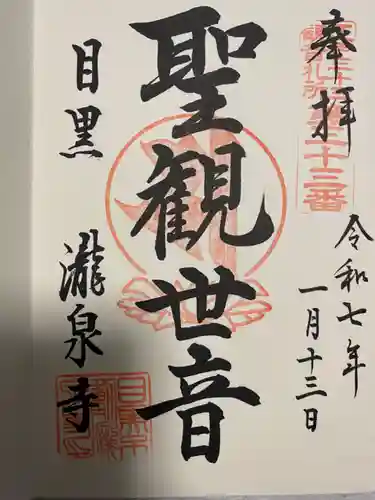 奉拝
三十三番
令和七年
一月十三日
聖観世音
目黒
瀧泉寺